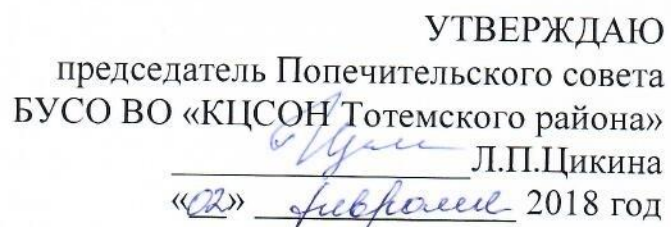 УТВЕРЖДАЮ
председатель Попечительского совета
БУСО ВО «КЦСОН Тотемского района»
Л.П.Цикина
«02» февраля 2018 год